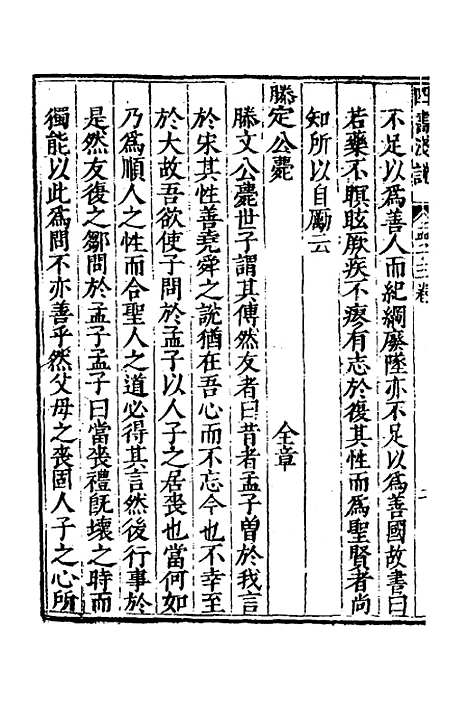 四書淺說
不足以為善人而紀綱廢墜亦不足以為善國故書曰
若藥不瞑眩厥疾不瘳有志於復其性而為聖賢者尚
知所以自勵云
滕定公薨 全章
滕文公薨世子謂其傅然友者曰昔者孟子曾於我言
於宋其性善堯舜之說猶在吾心而不忘今也不幸至
於大故吾欲使子問於孟子以人子之居喪也當何如
乃為順人之性而合聖人之道必得其言然後行事於
是然友復之鄒問於孟子孟子曰當喪禮既壞之時而
獨能以此為問不亦善乎然父母之喪固人子之心所